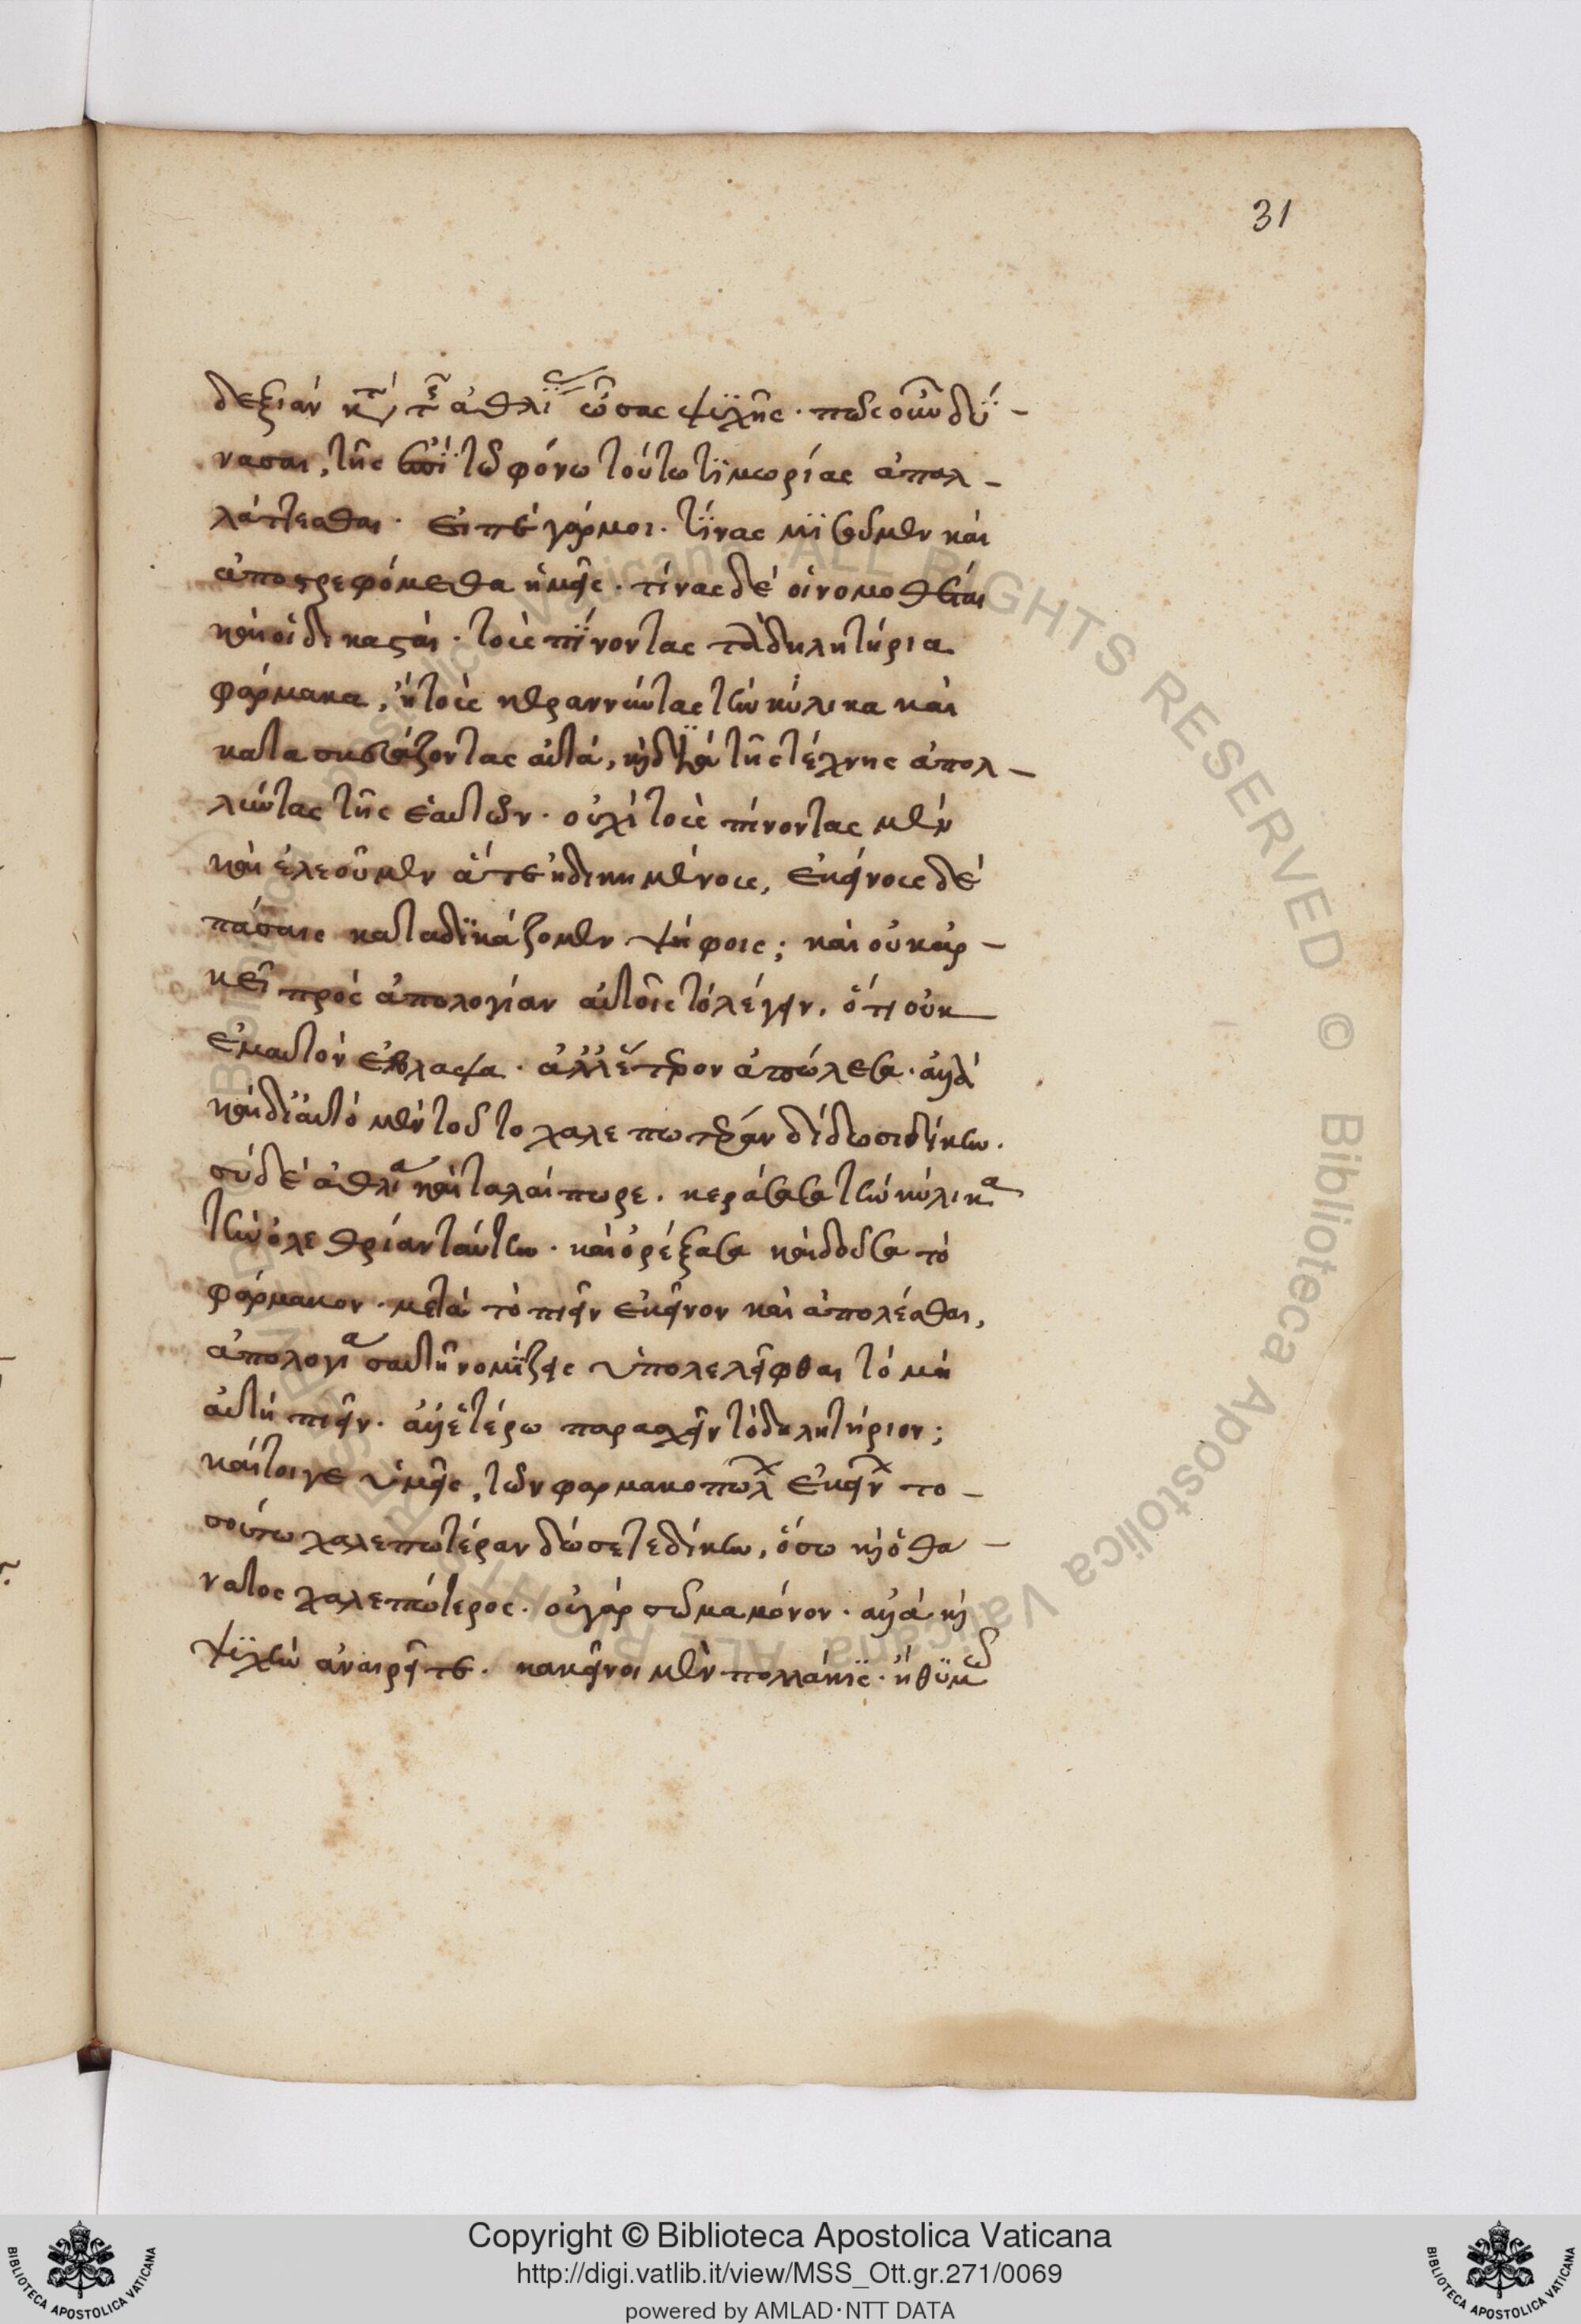 31
δεξιὰν κατὰ τῆς ἀθλίας ὤσας ψυχῆς. πῶς οὖν δύ-
νασαι, τῆς ἐπὶ τῷ φόνω τούτω τιμωρίας ἀπαλ-
λάττεσθαι. εἰπὲ γάρ μοι. τίνας μισοῦμεν καὶ
ἀποστρεφόμεθα ἡμεῖς. τίνας δὲ οἱ νομοθέται
καὶ οἱ δικασταὶ. τοὺς πίνοντας τὰ δηλητήρια
φάρμακα, ἢ τοὺς κεραννύντας τὴν κύλικα καὶ
κατασκευάζοντας αὐτὰ, καὶ διὰ τῆς τέχνης ἀπολ-
λύντας τῆς ἑαυτῶν. οὐχὶ τοὺς πίνοντας μὲν
καὶ ἐλεοῦμεν ἅτε ἠδικημένους, ἐκείνους δὲ
πάσαις καταδικάζομεν ψήφοις; καὶ οὐκ ἀρ-
κεῖ πρὸς ἀπολογίαν αὐτοῖς τὸ λέγειν, ὅτι οὐκ
ἐμαυτὸν ἔβλαψα. ἀλλ' ἕτερον ἀπώλεσα. ἀλλὰ
καὶ δι' αὐτὸ μὲν τοῦτο χαλεπωτέραν δίδωσι δίκην.
σὺ δὲ ἀθλία καὶ ταλαίπωρε. κεράσασα τὴν κύλικα
τὴν ὀλεθρίαν ταύτην. καὶ ὀρέξασα καὶ δοῦσα τὸ
φάρμακον. μετὰ τὸ πιεῖν ἐκεῖνον καὶ ἀπολέσθαι,
ἀπολογίαν σαυτῆ νομίζεις ὑπολελεῖφθαι τὸ μὴ
αὐτὴ πιεῖν. ἀλλ' ἑτέρω παρασχεῖν τὸ δηλητήριον;
καίτοι γε ὑμεῖς, τῶν φαρμακοπωλῶν ἐκείνων το-
σούτω χαλεπωτέραν δώσετε δίκην, ὅσω καὶ ὁ θά-
νατος χαλεπώτερος. οὐ γὰρ σῶμα μόνον. ἀλλὰ καὶ
ψυχὴν ἀναιρεῖτε. κἀκεῖνοι μὲν πολλάκις. ἢ θυμῶ
Copyright © Biblioteca Apostolica Vaticana
http://digi.vatlib.it/view/MSS_Ott.gr.271/0069
powered by AMLAD·NTT DATA